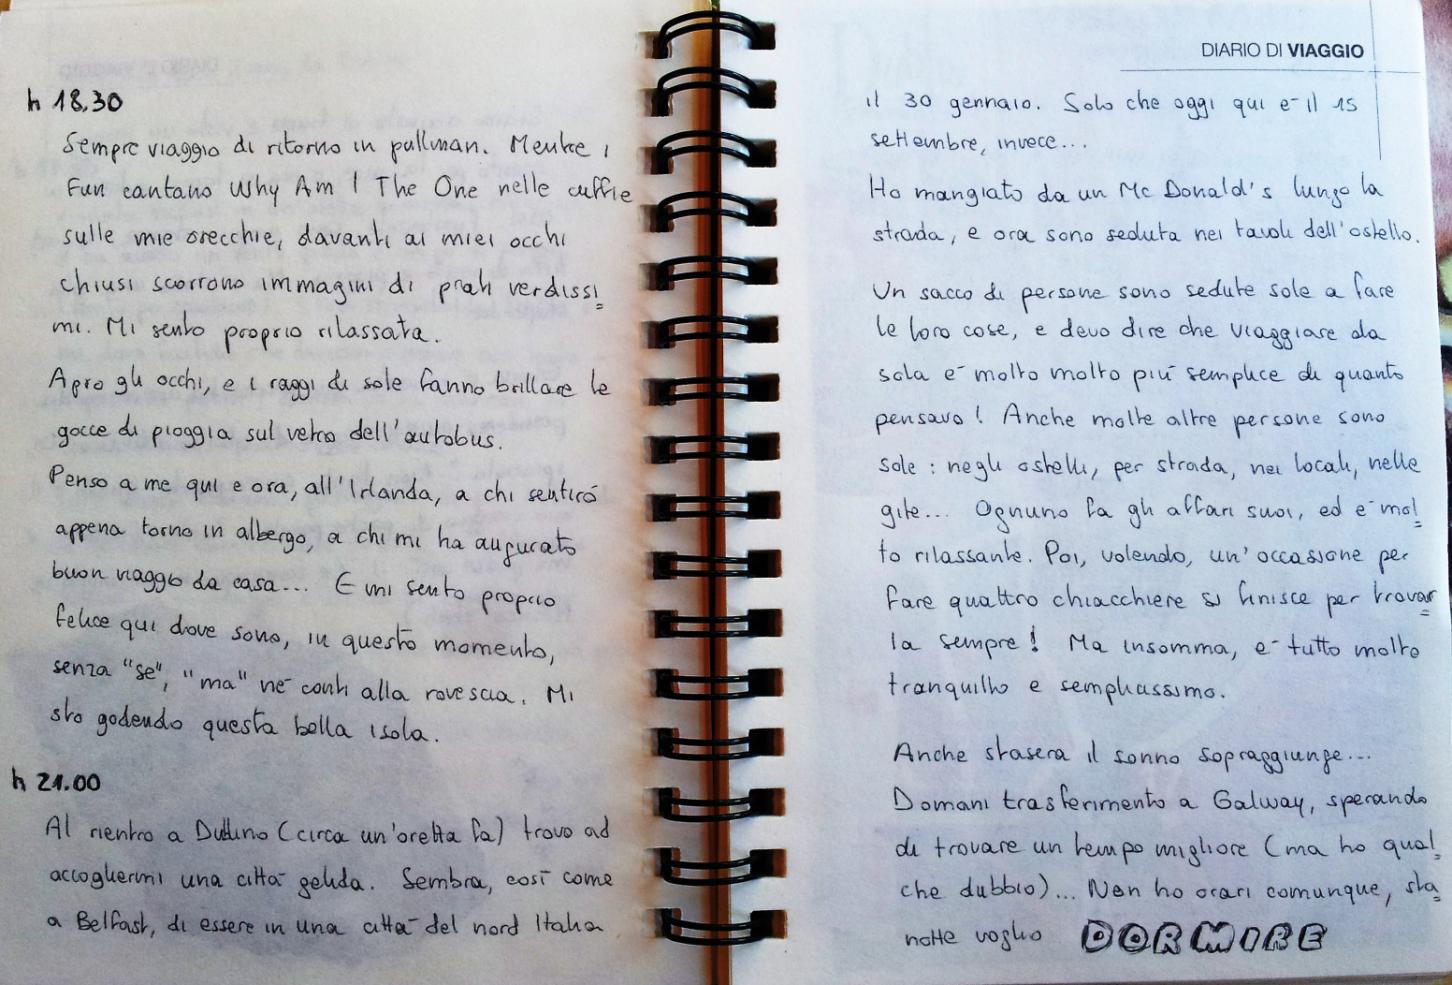 h 18.30
Sempre viaggio di ritorno in pullman. Mentre i
Fun cantano Why Am I The One nelle cuffie
sulle mie orecchie, davanti ai miei occhi
chiusi scorrono immagini di prati verdissi
mi. Mi sento proprio rilassata.
Apro gli occhi, e i raggi di sole fanno brillare le
gocce di pioggia sul vetro dell'autobus.
Penso a me qui e ora, all'Irlanda, a chi sentirò
appena torno in albergo, a chi mi ha augurato
buon viaggio da casa... E mi sento proprio
felice qui dove sono, in questo momento,
senza "se", "ma" né conti alla rovescia. Mi
sto godendo questa bella isola.
h 21.00
Al rientro a Dublino (circa un'oretta fa) trovo ad
accogliermi una città gelida. Sembra, così come
a Belfast, di essere in una città del nord Italia
DIARIO DI VIAGGIO
il 30 gennaio. Solo che oggi qui è il 15
settembre, invece...
Ho mangiato da un Mc Donald's lungo la
strada, e ora sono seduta nei tavoli dell'ostello.
Un sacco di persone sono sedute sole a fare
le loro cose, e devo dire che viaggiare da
sola è molto molto più semplice di quanto
pensavo! Anche molte altre persone sono
sole: negli ostelli, per strada, nei locali, nelle
gite... Ognuno fa gli affari suoi, ed è mol
to rilassante. Poi, volendo, un'occasione per
fare quattro chiacchiere si finisce per trovar
la sempre! Ma insomma, è tutto molto
tranquillo e semplicissimo.
Anche stasera il sonno sopraggiunge...
Domani trasferimento a Galway, sperando
di trovare un tempo migliore (ma ho qual
che dubbio)... Non ho orari comunque, sta
notte voglio DORMIRE